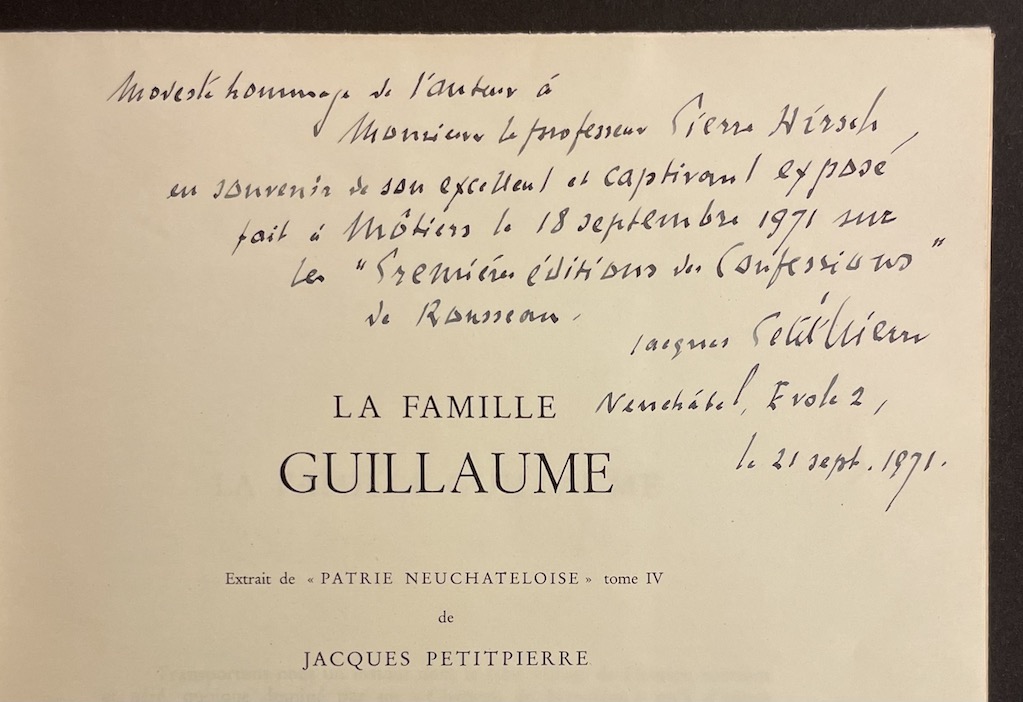 Modeste hommage de l'auteur à
Monsieur le professeur Pierre Hirsch,
en souvenir de son excellent et captivant exposé
fait à Môtiers le 18 septembre 1971 sur
les "Premières éditions des Confessions"
de Rousseau.
Jacques PetitPierre
LA FAMILLE
Neuchâtel, Evole 2,
GUILLAUME
le 21 sept. 1971.
Extrait de « PATRIE NEUCHATELOISE » tome IV
de
JACQUES PETITPIERRE